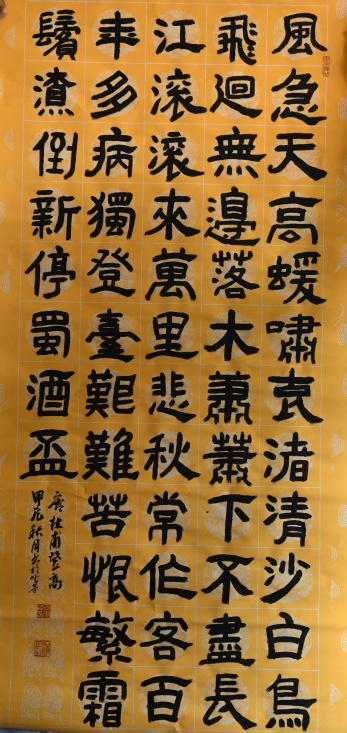 風急天高蝯嘯哀渚清沙白鳥
飛迴無邊落木蕭蕭下不盡長
江滚滚來萬里悲秋常作客百
年多病獨登臺艱難苦恨繁霜
鬢潦倒新停蜀酒盃
唐杜甫登高
甲辰秋月書於